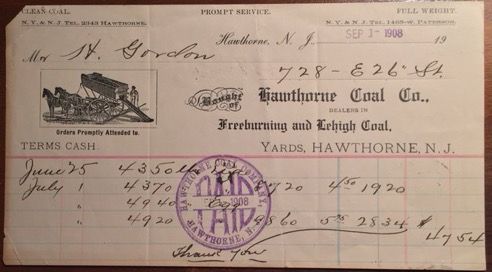 CLEAN COAL. PROMPT SERVICE. FULL WEIGHT.
N. Y. & N. J. TEL. 2343 HAWTHORNE. N. Y. & N. J. TEL. 1465-W. PATERSON.
Hawthorne, N. J. SEP 1- 1908 19
Mr H. Gordon
728 - E 26" St.
Bought of Hawthorne Coal Co.,
DEALERS IN
Orders Promptly Attended to. Freeburning and Lehigh Coal.
TERMS CASH. YARDS, HAWTHORNE, N. J.
June 25 4350
July 1 4370 8720 4 50 1920
" 4940 Egg
" 4920 9860 5 75 2834 $
4754
HAWTHORNE COAL COMPANY,
PAID
1908
HAWTHORNE, N. J.
Thank You